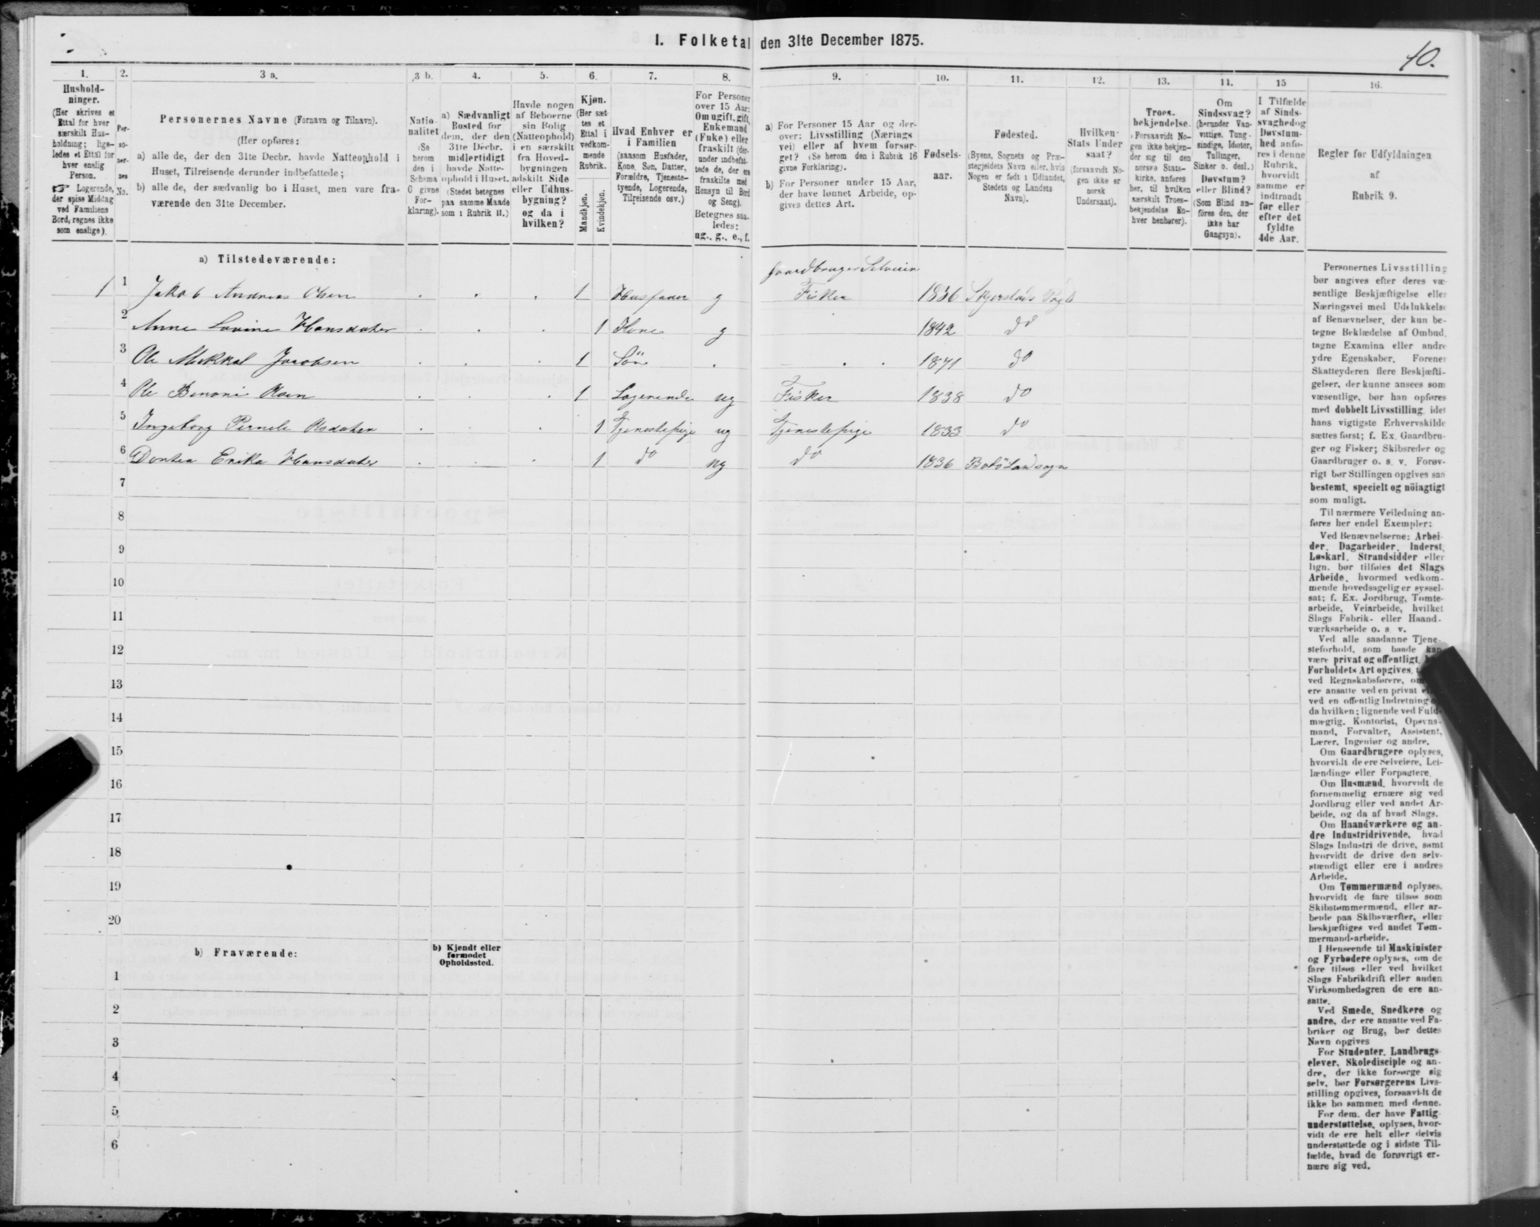 I. Folketal den 31te December 1875.
10.
1. 2. 3 a. 3 b. 4. 5. 6. 7. 8. 9. 10. 11. 12. 13. 14. 15 16.
Hushold-
ninger.
(Her skrives et
Ettal for hver
særskilt Hus-
holdning; lige-
ledes et Ettal for
hver enslig
Person.
☞ Logerende,
der spise Middag
ved Familiens
Bord, regnes ikke
som enslige).
Per-
so-
ner-
nes
No.
Personernes Navne (Fornavn og Tilnavn).
(Her opføres:
a) alle de, der den 31te Decbr. havde Natteophold i
Huset, Tilreisende derunder indbefattede;
b) alle de, der sædvanlig bo i Huset, men vare fra-
værende den 31te December.
Natio-
nalitet
(Se
herom
den i
Schema
O givne
For-
klaring).
a) Sædvanligt
Bosted for
dem, der den
31te Decbr.
midlertidigt
havde Natte-
ophold i Huset.
(Stedet betegnes
paa samme Maade
som i Rubrik 11.)
Havde nogen
af Beboerne
sin Bolig
(Natteophold)
i en særskilt
fra Hoved-
bygningen
adskilt Side
eller Udhus-
bygning?
og da i
hvilken?
Kjøn.
(Her sæt-
tes et
Ettal i
vedkom-
mende
Rubrik.
Mandkjøn.
Kvindekjøn.
Hvad Enhver er
i Familien
(saasom Husfader,
Kone, Søn, Datter,
Forældre, Tjeneste-
tyende, Logerende,
Tilreisende osv.)
For Personer
over 15 Aar:
Om ugift, gift,
Enkemand
(Enke) eller
fraskilt (der-
under indbefat-
tede de, der ere
fraskilte med
Hensyn til Bord
og Seng).
Betegnes saa-
ledes:
ug., g., e., f.
a) For Personer 15 Aar og der-
over: Livsstilling (Nærings
vei) eller af hvem forsør-
get? (Se herom den i Rubrik 16
givne Forklaring).
b) For Personer under 15 Aar,
der have lønnet Arbeide, op-
gives dettes Art.
Fødsels-
aar.
Fødested.
(Byens, Sognets og Præ-
stegjeldets Navn eller, hvis
Nogen er født i Udlandet,
Stedets og Landets
Navn).
Hvilken
Stats Under
saat?
(forsaavidt No-
gen ikke er
norsk
Undersaat).
Troes-
bekjendelse.
(Forsaavidt No-
gen ikke bekjen-
der sig til den
norske Stats-
kirke, anføres
her, til hvilken
særskilt Troes-
bekjendelse En-
hver henhører).
Om
Sindssvag?
(herunder Van-
vittige, Tung-
sindige, Idioter,
Tullinger,
Sinker o. desl.)
Døvstum?
eller Blind?
(Som Blind an-
føres den, der
ikke har
Gangsyn).
I Tilfælde
af Sinds-
svaghed og
Døvstum-
hed anfø-
res i denne
Rubrik,
hvorvidt
samme er
indtraadt
før eller
efter det
fyldte
4de Aar.
Regler for Udfyldningen
af
Rubrik 9.
a) Tilstedeværende:
Gaardbruger Selveier
1 1 Jakob Andreas Olsen . . . 1 Husfader g Fisker 1836 Skjerstads Prgld
2 Anne Lovine Hansdatter . . . 1 Kone g 1842 do
3 Ole Mikkal Jacobsen . . . 1 Søn . — . . 1871 do
4 Ole Benoni Olsen . . . 1 Logerende ug Fisker 1838 do
5 Ingeborg Pernele Olsdatter . . . 1 Tjenestepige ug Tjenestepige 1833 do
6 Dortea Erika Hansdatter . . . 1 do ug do 1836 Bodö Landsogn
7
8
9
10
11
12
13
14
15
16
17
18
19
20
b) Fraværende:
b) Kjendt eller
formodet
Opholdssted.
1
2
3
4
5
6
Personernes Livsstilling
bør angives efter deres væ-
sentlige Beskjæftigelse eller
Næringsvei med Udelukkelse
af Benævnelser, der kun be-
tegne Beklædelse af Ombud,
tagne Examina eller andre
ydre Egenskaber. Forener
Skatteyderen flere Beskjæfti-
gelser, der kunne ansees som
væsentlige, bør han opføres
med dobbelt Livsstilling, idet
hans vigtigste Erhvervskilde
sættes først; f. Ex. Gaardbru-
ger og Fisker; Skibsreder og
Gaardbruger o. s. v. Forøv-
rigt bør Stillingen opgives saa
bestemt, specielt og nöiagtigt
som muligt.
Til nærmere Veiledning an-
føres her endel Exempler:
Ved Benævnelserne: Arbei-
der, Dagarbeider, Inderst,
Løskarl, Strandsidder eller
lign. bør tilføies det Slags
Arbeide, hvormed vedkom-
mende hovedsagelig er syssel-
sat; f. Ex. Jordbrug, Tomte-
arbeide, Veiarbeide, hvilket
Slags Fabrik- eller Haand-
værksarbeide o. s. v.
Ved alle saadanne Tjene-
steforhold, som baade kan
være privat og offentligt,
Forholdets Art opgives,
ved Regnskabsførere, om
ere ansatte ved en privat
ved en offentlig Indretning
da hvilken; lignende ved Fuld-
mægtig, Kontorist, Opsyns-
mand, Forvalter, Assistent,
Lærer, Ingeniør og andre.
Om Gaardbrugere oplyses,
hvorvidt de ere Selveiere, Lei-
lændinge eller Forpagtere.
Om Husmænd, hvorvidt de
fornemmelig ernære sig ved
Jordbrug eller ved andet Ar-
beide, og da af hvad Slags.
Om Haandværkere og an-
dre Industridrivende, hvad
Slags Industri de drive, samt
hvorvidt de drive den selv-
stændigt eller ere i andres
Arbeide.
Om Tømmermænd oplyses,
hvorvidt de fare tilsøs som
Skibstømmermænd, eller ar-
beide paa Skibsværfter, eller
beskjæftiges ved andet Tøm-
mermandsarbeide.
I Henseende til Maskinister
og Fyrbødere oplyses, om de
fare tilsøs eller ved hvilket
Slags Fabrikdrift eller anden
Virksomhedsgren de ere an-
satte.
Ved Smede, Snedkere og
andre, der ere ansatte ved Fa-
briker og Brug, bør dettes
Navn opgives
For Studenter, Landbrugs-
elever, Skoledisciple og an-
dre, der ikke forsørge sig
selv, bør Forsørgerens Livs-
stilling opgives, forsaavidt de
ikke bo sammen med denne.
For dem, der have Fattig-
understøttelse, oplyses, hvor-
vidt de ere helt eller delvis
understøttede og i sidste Til-
fælde, hvad de forøvrigt er-
nære sig ved.